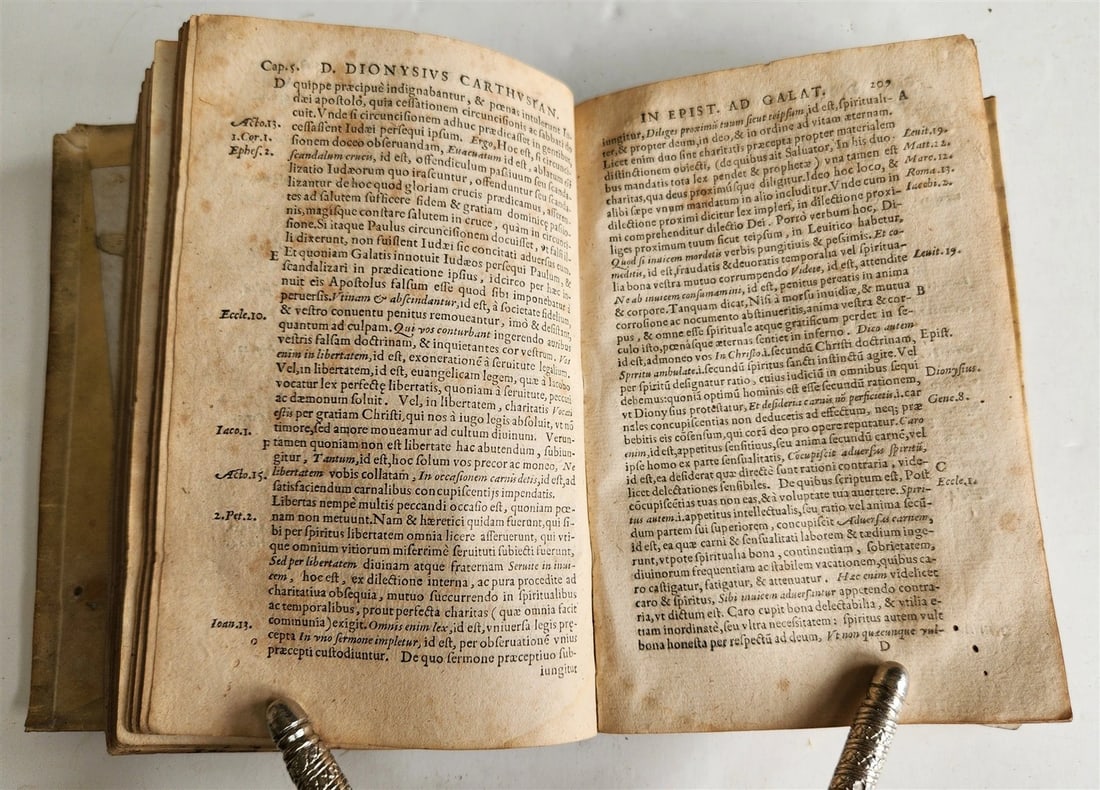 Cap. 5. D. DIONYSIVS CARTHVSIAN.
D quippe præcipuè indignabantur, & pœnas intulerunt Iu-
dæi apostolo, quia cessationem circuncisionis ac sabbati do-
cuit. Vnde si circuncisionem adhuc prædicasset in gentibus,
Acto.13. cessassent Iudæi persequi ipsum. Ergo, Hoc est, si circunci-
1.Cor.1. sionem doceo obseruandam, Euacuatum id est, ablatum est
Ephes.2. scandalum crucis, id est, offendiculum passiuum seu scanda-
lizatio Iudæorum quo irascuntur, offenduntur seu scanda-
lizantur de hoc quod gloriam crucis prædicamus, asseren-
tes ad salutem sufficere fidem & gratiam dominicę passio-
nis, magisque constare salutem in cruce, quàm in circunci-
sione. Si itaque Paulus circuncisionem docuisset, vt falsi il-
li dixerunt, non fuissent Iudæi sic concitati aduersus eum.
E Et quoniam Galatis innotuit Iudæos persequi Paulum, &
scandalizari in prædicatione ipsius, idcirco per hæc in-
nuit eis Apostolus falsum esse quod sibi imponebatur à
peruersis. Vtinam & abscindantur, id est, à societate fidelium,
Eccle.10. & vestro conuentu penitus remoueantur, imò & desistant,
quantum ad culpam. Qui vos conturbant ingerendo auribus
vestris falsam doctrinam, & inquietantes cor vestrum. Vos
enim in libertatem, id est, exonerationē à seruitute legalium.
Vel, in libertatem, id est, euangelicam legem, quæ à Iacobo
vocatur lex perfectę libertatis, quoniam à seruitute, peccati
ac dæmonum soluit. Vel, in libertatem, charitatis Vocati
estis per gratiam Christi, qui nos à iugo legis absoluit, vt nō
Iaco.1. timore, sed amore moueamur ad cultum diuinum. Verun-
F tamen quoniam non est libertate hac abutendum, subiun-
gitur, Tantum, id est, hoc solum vos precor ac moneo, Ne
Acto.15. libertatem vobis collatam, In occasionem carnis detis, id est, ad
satisfaciendum carnalibus concupiscentijs impendatis.
Libertas nempè multis peccandi occasio est, quoniam pœ-
2.Pet.2. nam non metuunt. Nam & hæretici quidam fuerunt, qui si-
bi per spiritus libertatem omnia licere asseruerunt, qui vti-
que omnium vitiorum miserrimè seruituti subiecti fuerunt,
Sed per libertatem diuinam atque fraternam Seruite in inui-
cem, hoc est, ex dilectione interna, ac pura procedite ad
charitatiua obsequia, mutuo succurrendo in spiritualibus
ac temporalibus, prout perfecta charitas (quæ omnia facit
Ioan.13. communia) exigit. Omnis enim lex, id est, vniuersa legis præ-
o cepta In vno sermone impletur, id est, per obseruationē vnius
præcepti custodiuntur. De quo sermone præceptiuo sub-
iungitut
IN EPIST. AD GALAT. 209
iungitur, Diliges proximū tuum sicut teipsum, id est, spirituali- A
ter, & propter deum, in deo, & in ordine ad vitam æternam.
Licet enim duo sint charitatis præcepta propter materialem Leuit.19.
distinctionem obiecti, (de quibus ait Saluator, In his duo- Matt.22.
bus mandatis tota lex pendet & prophetæ) vna tamen est Marc.12.
charitas, qua deus proximúsque diligitur. Ideo hoc loco, & Roma.13.
alibi sæpe vnum mandatum in alio includitur. Vnde cum in Iacobi.2.
dilectione proximi dicitur lex impleri, in dilectione proxi-
mi comprehenditur dilectio Dei. Porrò verbum hoc, Di-
liges proximum tuum sicut teipsum, in Leuitico habetur,
Quod si inuicem mordetis verbis pungitiuis & pessimis. Et co- Leuit.19.
meditis, id est, fraudatis & deuoratis temporalia vel spiritua-
lia bona vestra mutuo corrumpendo Videte, id est, attendite
Ne ab inuicem consumamini, id est, penitus pereatis in anima
& corpore. Tanquam dicat, Nisi à morsu inuidiæ, & mutua B
corrosione ac nocumento abstinueritis, anima vestra & cor-
pus, & omne esse spirituale atque gratificum perdet in se-
culo isto, pœnásque æternas sentiet in inferno. Dico autem
id est, admoneo vos In Christo .i. secundū Christi doctrinam, Epist.
Spiritu ambulate .i. secundū spiritus sancti instinctū agite. Vel
per spiritū designatur ratio, cuius iudiciū in omnibus sequi
debemus: quoniā optimū hominis est esse secundū rationem, Dionysius.
vt Dionysius protestatur, Et desideria carnis nō perficietis .i. car
nales concupiscentias non deducetis ad effectum, neq; præ Gene.8.
bebitis eis cōsensum, qui corā deo pro opere reputatur. Caro
enim, id est, appetitus sensitiuus, seu anima secundū carnē, vel
ipse homo ex parte sensualitatis, Cōcupiscit aduersus spiritū,
id est, ea desiderat quæ directè sunt rationi contraria, vide- C
licet delectationes sensibiles. De quibus scriptum est, Post Eccle.18.
cōcupiscētias tuas non eas, & à voluptate tua auertere. Spiri-
tus autem .i. appetitus intellectualis, seu ratio vel anima secū-
dum partem sui superiorem, concupiscit Aduersus carnem,
id est, ea quæ carni & sensualitati laborem & tædium inge-
runt, vtpote spiritualia bona, continentiam, sobrietatem,
diuinorum frequentiam ac stabilem vacationem, quibus ca-
ro castigatur, fatigatur, & attenuatur. Hæc enim videlicet
caro & spiritus, Sibi inuicem aduersantur appetendo contra-
ria, vt dictum est. Caro cupit bona delectabilia, & vtilia e-
tiam inordinatè, seu vltra necessitatem: spiritus autem vult
bona honesta per respectū ad deum, Vt non quæcunque vul-
D